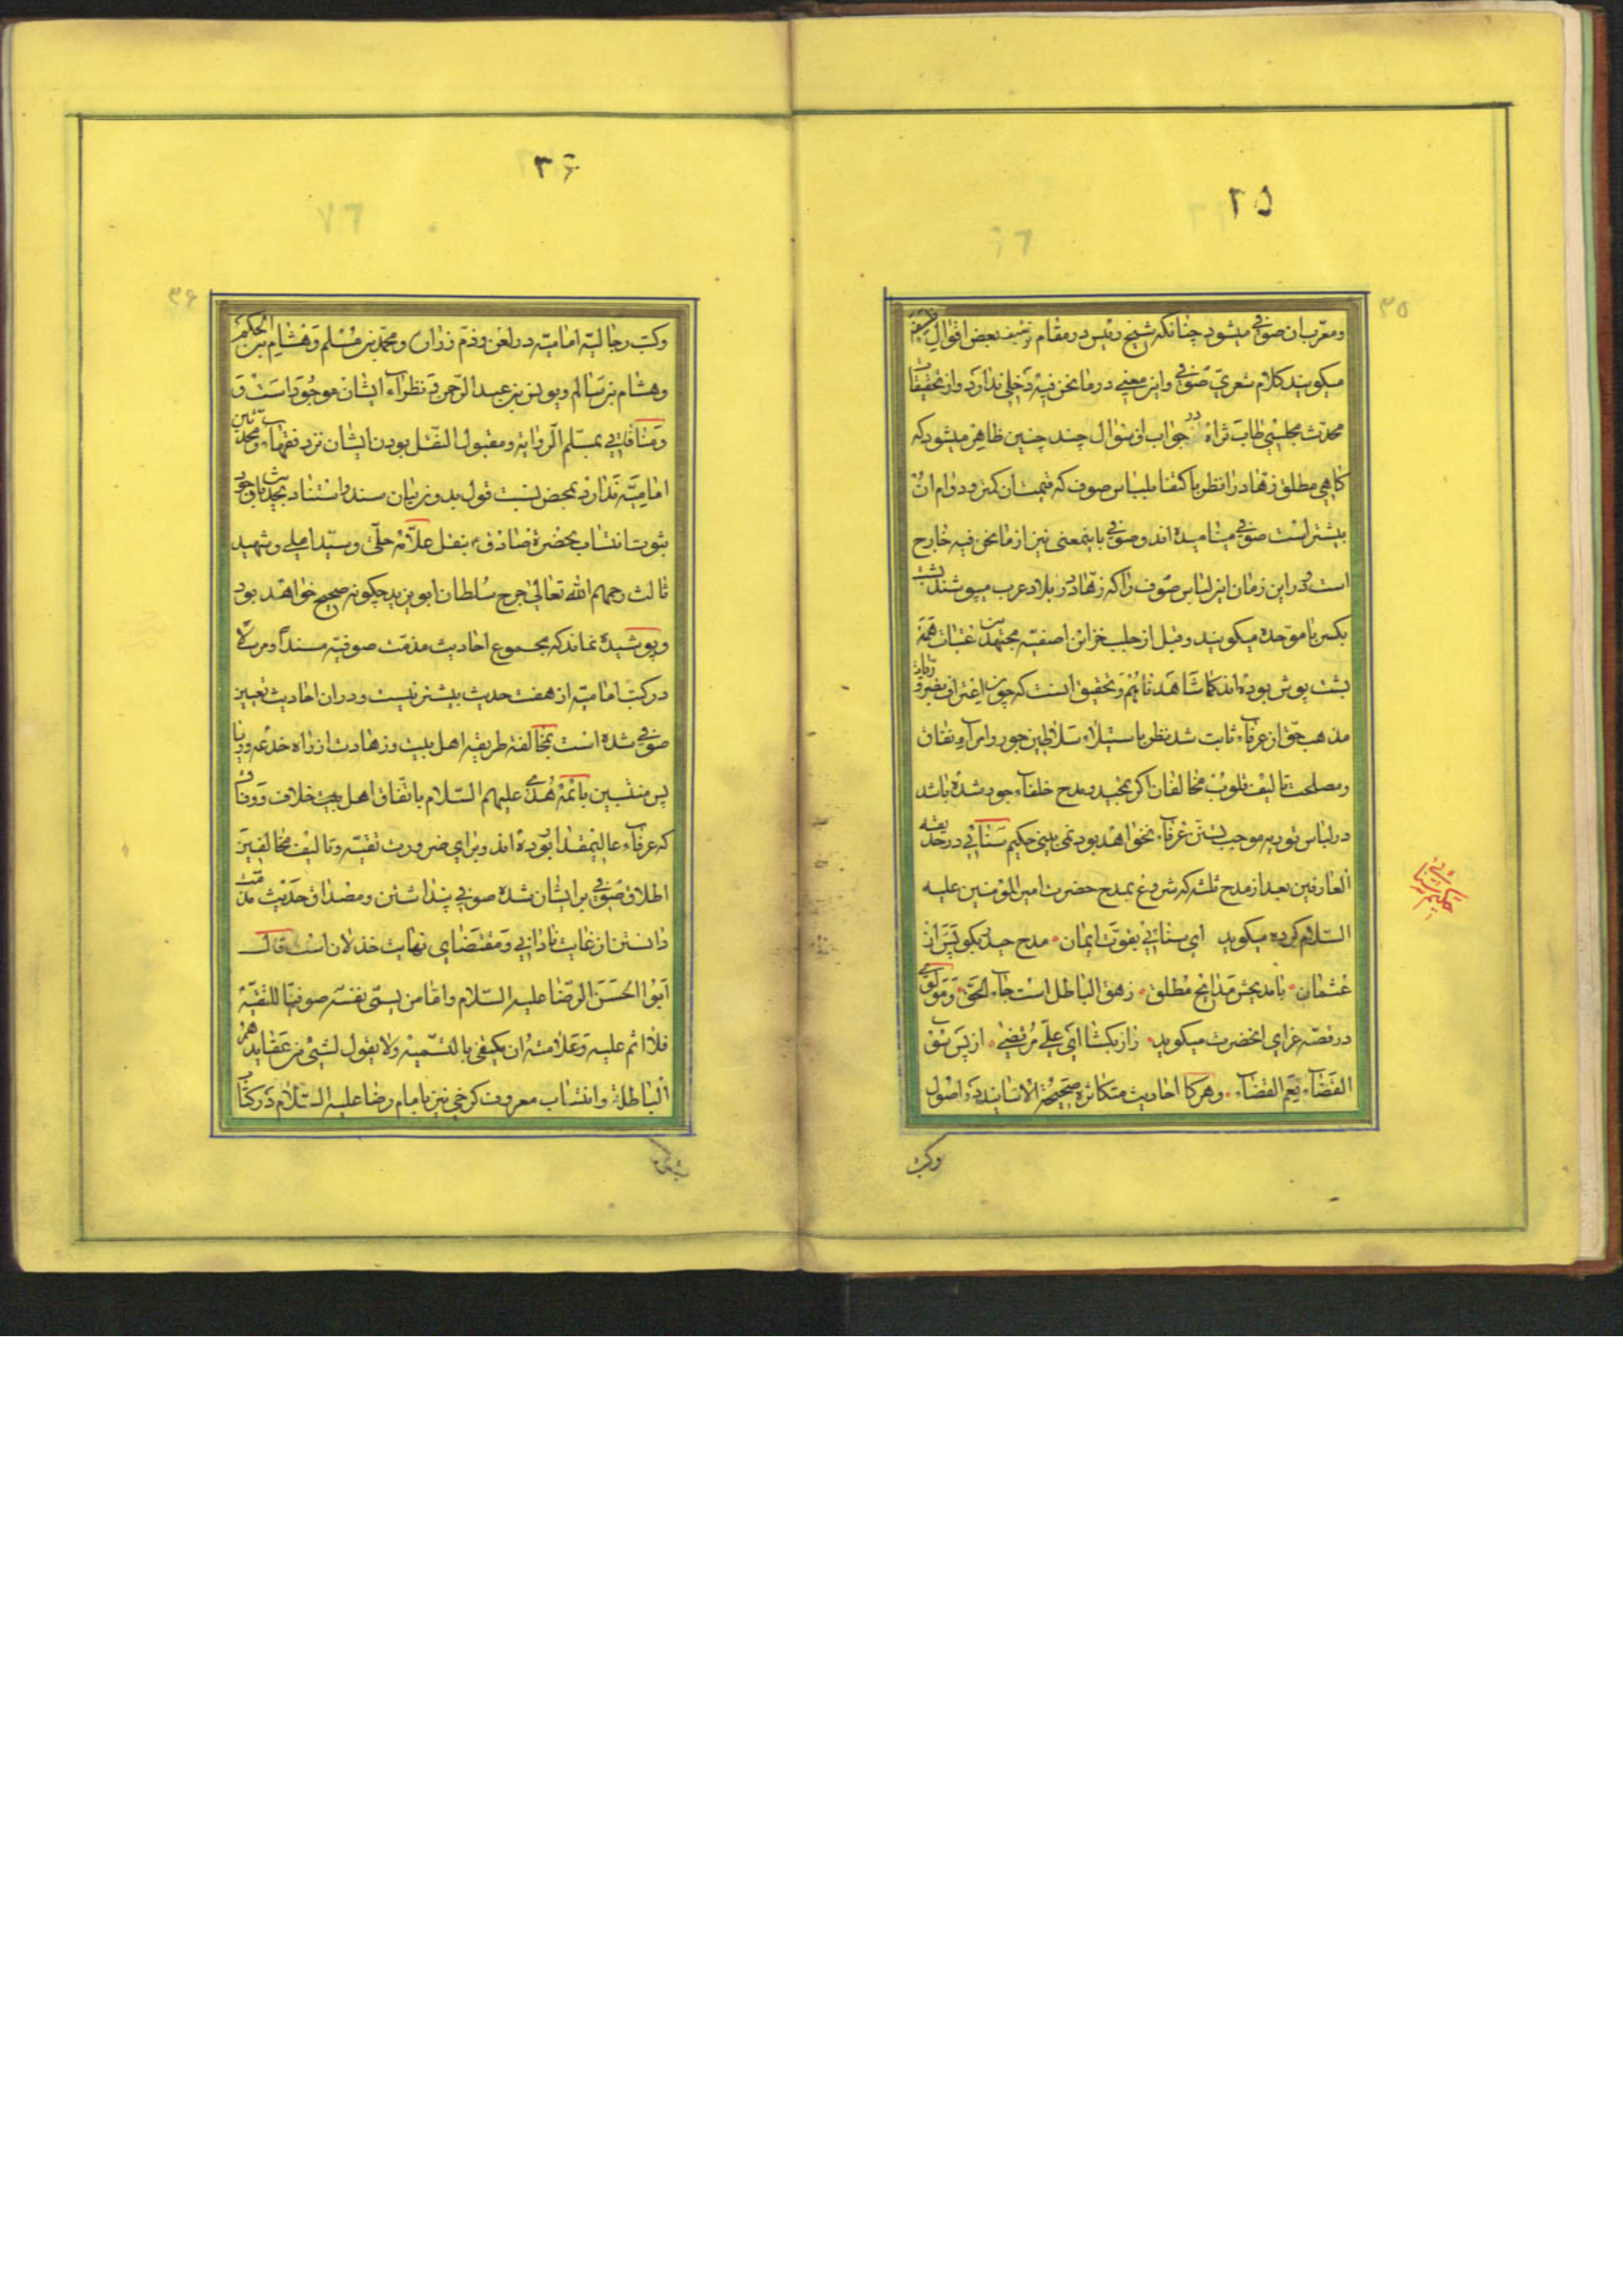 ۲۵
۳۵
ومعرّب ان صوفی میشود چنانکه شیخ رئیس در مقام تزییف بعض اقوال فلاسفه
میکویند کلام شعری صوفی واین معنی در ما نحن فیه دخلی ندارد واز تحقیقات
محدث مجلسی طاب ثراه در جواب از سؤال چند چنین ظاهر میشود که
کاهی مطلق زهاد را نظر باکتفا بلباس صوف که قیمتش کمتر ودوام ان
بیشتر است صوفی مینامیده اند وصوفی باینمعنی نیز از ما نحن فیه خارج
است ودر این زمان این لباس صوف را که زهاد در بلاد عرب میپوشند پشت
بکسر با موحده میکویند وقبل از جلب خزائن اصفیه مجتهدین عتبات همه
پشت پوش بوده اند کما شاهدناهم وتحقیق انست که چون اعتراف بفقر و
مذهب حق از عرفاء ثابت شد نظر باستیلاء سلاطین جور وامراء ونفاق
ومصلحت تالیف قلوب مخالفان اکر تمجید ومدح خلفاء جور شده باشد
در لباس توریه موجب تسنن عرفاء نخواهد بود نمی بینی حکیم سنائی در حدیقه
العارفین بعد از مدح ثلثه که شروع بمدح حضرت امیر المؤمنین علیه
السلام کرده میکوید ای سنائی بقوت ایمان مدح حیدر بکو پس از
عثمان با مدیحش مدایح مطلق زهق الباطل است جاء الحق ومولوی
در قصه غزای انحضرت میکوید راز بکشا ای علی مرتضی از پس سوء
القضاء نعم القضاء وهرکا احادیث متکاثره صحیحة الاسانید در اصول
وکتب
حکیم سنائی
۳۶
۳۶
وکتب رجالیّه امامیّه در لعن وذم زراره ومحمد بن مسلم وهشام بن الحکم
وهشام بن سالم ویونس بن عبد الرحمن ونظراء ایشان موجود است و
ومنافاتی بمسلم الروایه ومقبول النقل بودن ایشان نزد فقهاء ومحدثین
امامیّه ندارد بمحض نسبت قول بد وزبان سند واستناد بحدیث با وجود
ثبوت انتساب بحضرة صادق ع بنقل علامه حلی وسید املی وشهید
ثالث رحمهم الله تعالی جرح سلطان ابو یزید چکونه صحیح خواهد بود
وپوشیده نماند که مجموع احادیث مذمت صوفیه مسندا ومرسلا
در کتب امامیه از هفت حدیث بیشتر نیست ودر ان احادیث تعبیر
صوفی شده است بمخالفة طریقه اهل بیت وزهادت از راه خدعه وریا
پس منتسبین بائمه هدی علیهم السلام باتفاق اهل بیت خلاف ووفاق
که عرفاء عالیمقدار بوده اند وبرای ضرورت تقیه وتالیف مخالفین
اطلاق صوفی بر ایشان شده صوفی پنداشتن ومصداق حدیث مذمت
دانستن از غایت نادانی ومقتضای نهایت خذلان است قال
ابوا الحسن الرضا علیه السلام واما من یسمی نفسه صوفیا للتقیة
فلا اثم علیه وعلامته ان یکتفی بالتسمیه ولا یقول لشیء من عقایدهم
الباطلة وانتساب معروف کرخی نیز بامام رضا علیه السلام در کتاب